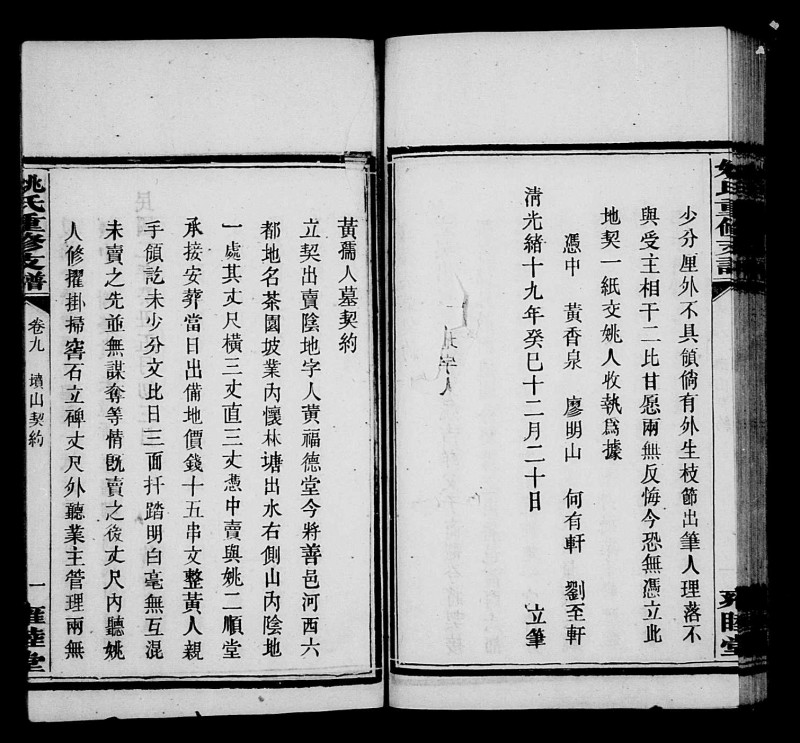 少分厘外不具領倘有外生枝節出筆人理落不
與受主相干二比甘愿兩無反悔今恐無憑立此
地契一紙交姚人收執爲據
憑中　黃香泉　廖明山　何有軒　劉至軒
清光緒十九年癸巳十二月二十日　立筆
黃孺人墓契約
立契出賣陰地字人黃福德堂今將善邑河西六
都地名茶園坡業內懷林塘出水右側山內陰地
一處其丈尺橫三丈直三丈憑中賣與姚二順堂
承接安葬當日出備地價錢十五串文整黃人親
手領訖未少分文比日三面扦踏明白毫無互混
未賣之先並無謀奪等情既賣之後丈尺內聽姚
人修擢掛掃窖石立碑丈尺外聽業主管理兩無
姚氏重修支譜
卷九　墳山契約
一
雍睦堂